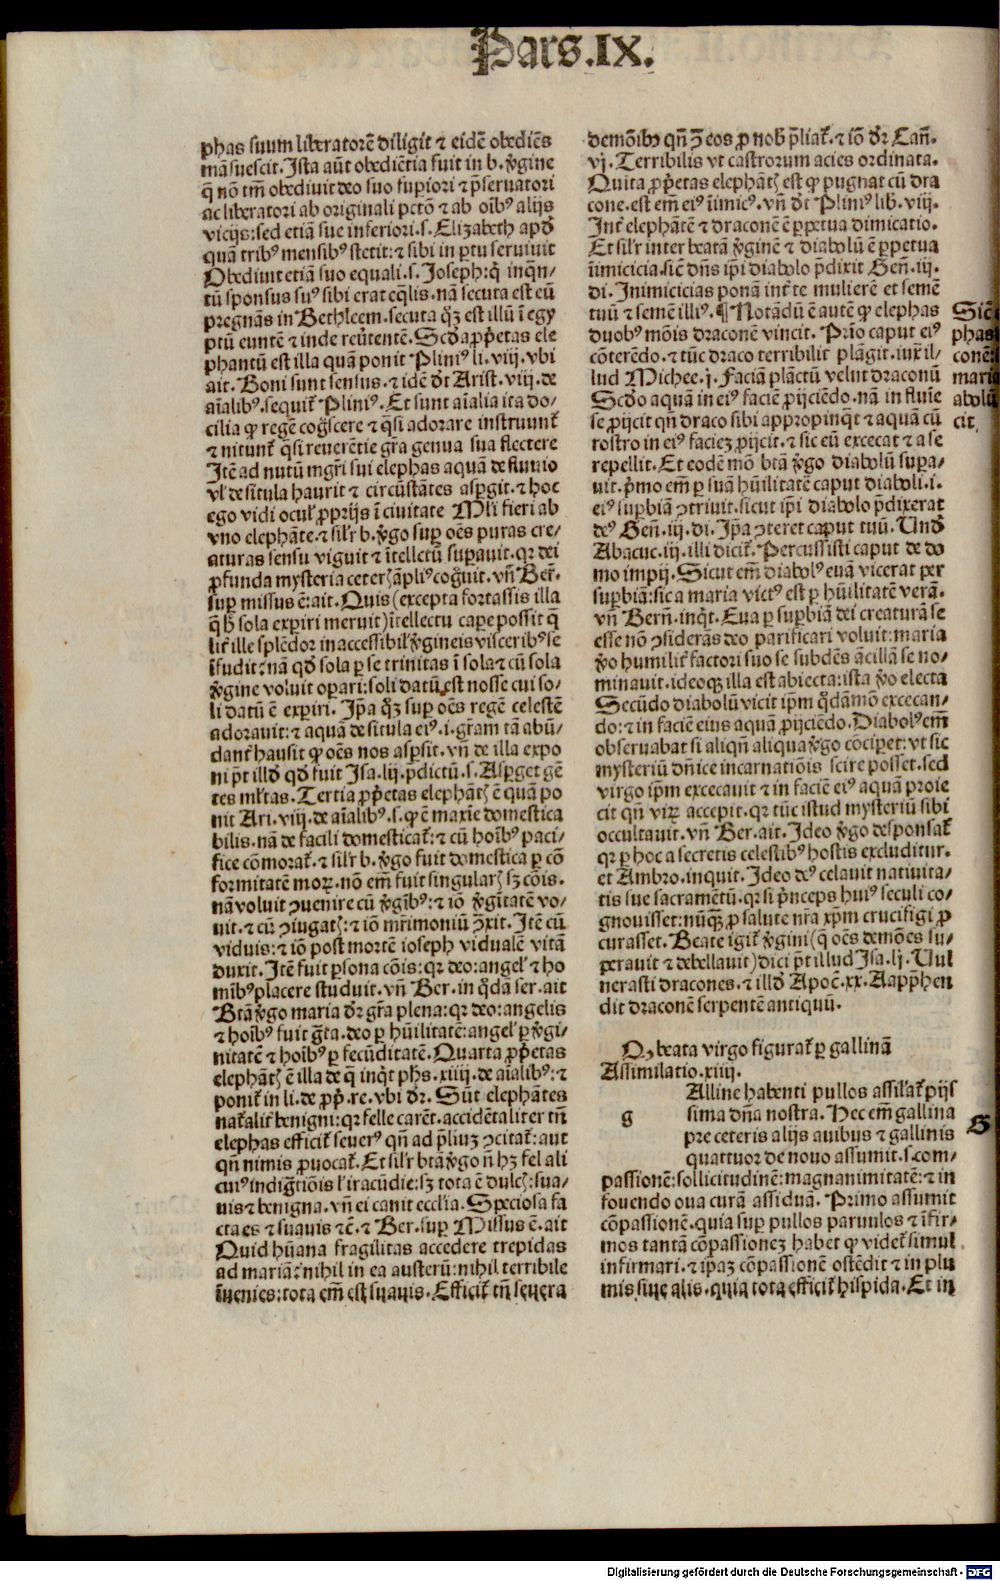 Pars.IX.
phas suum liberatorē diligit ⁊ eidē obediēs
māsuescit. Ista aūt obediētia fuit in b. v̓gine
q̄ nō tm̄ obediuit deo suo supiori ⁊ p̄seruatori
ac liberatori ab originali pctō ⁊ ab oībꝰ alijs
vicijs: sed etiā sue inferiori. s. Elizabeth apd̓
quā tribꝰ mensibꝰ stetit: ⁊ sibi in ꝑtu seruiuit
Obediuit etiā suo equali. s. Ioseph: q̓ inqn̄-
tū sponsus suꝰ sibi erat eq̄lis. nā secuta est eū
pregnās in Bethleem. secuta q̓ꝫ est illū ī egy
ptū euntē ⁊ inde reūtentē. Scd̓a ꝓp̓etas ele
phantū est illa quā ponit Pliniꝰ li. viij. vbi
ait. Boni sunt sensus. ⁊ idē d̓t Arist. viij. de
aīalibꝰ. sequit̄ Pliniꝰ. Et sunt aīalia ita do-
cilia ꝙ regē cog̓scere ⁊ q̄si adorare instruunt̄
⁊ nitunt̄ q̄si reuerētie gr̄a genua sua flectere
Itē ad nutū mgr̄i sui elephas aquā de fluuio
vl̓ de situla haurit ⁊ circūstātes aspgit. ⁊ hoc
ego vidi ocul̓ ꝓprijs ī ciuitate Ml̓i fieri ab
vno elephāte. ⁊ sil̓r b. v̓go suꝑ oēs puras cre-
aturas sensu viguit ⁊ ītellectū suꝑauit. qꝛ dei
ꝓfunda mysteria ceteꝝ āpliꝰ cogūit. vn̄ Ber.
suꝑ missus ē: ait. Quis (excepta fortassis illa
q̄ h̓ sola exꝑiri meruit) ītellectu caꝑe possit q̄
lit̄ ille splēdor inaccessibil̓ v̓gineis visceribꝰ se
īfudit: nā qd̓ sola ꝑ se trinitas ī sola ⁊ cū sola
v̓gine voluit oꝑari: soli datū est nosse cui so-
li datū ē exꝑiri. Ip̄a q̓ꝫ suꝑ oēs regē celestē
adorauit: ⁊ aquā de situla eiꝰ. i. gr̄am tā abū-
dant̄ hausit ꝙ oēs nos asꝑsit. vn̄ de illa expo
ni p̄t illd̓ qd̓ fuit Isa. lij. p̄dictū. s. Asꝑget gē
tes ml̓tas. Tertia ꝓp̓etas elephātꝭ ē quā po
nit Ari. viij. de aīalibꝰ. s. ꝙ ē maxīe domestica
bilis. nā de facili domesticat̄: ⁊ cū hoībꝰ paci-
fice cōmorat̄. ⁊ sil̓r b. v̓go fuit domestica ꝑ cō
formitatē moꝝ. nō em̄ fuit singularꝭ sꝫ cōis.
nā voluit ꝯuenire cū v̓gībꝰ: ⁊ iō v̓gītatē vo-
uit. ⁊ cū ꝯiugatꝭ: ⁊ iō mr̄imoniū ꝯxit. Itē cū
viduis: ⁊ iō post mortē ioseph vidualē vitā
duxit. Itē fuit ꝑsona cōis: qꝛ deo: angel̓ ⁊ ho
mībꝰ placere studuit. vn̄ Ber. in q̄dā ser. ait
Btā v̓go maria d̓r gr̄a plena: qꝛ deo: angelis
⁊ hoībꝰ fuit gr̄ta. deo ꝑ hūilitatē: angel̓ ꝑ v̓gi-
nitatē ⁊ hoībꝰ ꝑ fecūditatē. Quarta ꝓp̓etas
elephātꝭ ē illa de q̄ inq̓t phs̄. xiiij. de aīalibꝰ: ⁊
ponit̄ in li. de ꝓp̓. re. vbi d̓r. Sūt elephātes
nat̄alit̄ benigni: qꝛ felle carēt. accidētaliter tn̄
elephas efficit̄ seuerꝰ qn̄ ad p̄liuꝫ ꝯcitat̄: aut
qn̄ nimis ꝓuocat̄. Et sil̓r btā v̓go n̄ hꝫ fel ali
cuiꝰ indigr̄tiōis l̓ iracūdie: sꝫ tota ē dulcꝭ: sua-
uis ⁊ benigna. vn̄ ei canit eccl̓ia. Speciosa fa
cta es ⁊ suauis ⁊c̄. ⁊ Ber. suꝑ Missus ē. ait
Quid hūana fragilitas accedere trepidas
ad mariā: nihil in ea austerū: nihil terribile
īuenies: tota em̄ est suauis. Efficit̄ tn̄ seuera
demōibꝫ qn̄ ꝯ̄ eos ꝓ nob̓ p̄liat̄. ⁊ iō d̓r Cān.
vj. Terribilis vt castrorum acies ordinata.
Quīta ꝓp̓etas elephātꝭ est ꝙ pugnat cū dra
cone. est em̄ eiꝰ īimicꝰ. vn̄ d̓t Pliniꝰ lib. viij.
Int̄ elephātē ⁊ draconē ē ꝑpetua dimicatio.
Et sil̓r inter beatā v̓ginē ⁊ diabolū ē ꝑpetua
īimicicia. sic̄ dn̄s ip̄i diabolo p̄dixit Gen̄. iij.
di. Inimicicias ponā int̄ te mulierē et semē
tuū ⁊ semē illiꝰ. ¶ Notādū ē autē ꝙ elephas
duobꝰ mōis draconē vincit. Prīo caput eiꝰ
cōterēdo. ⁊ tūc draco terribilit̄ plāgit. iux̄ il-
lud Michee. j. Faciā plāctū velut draconū
Scd̓o aquā in eiꝰ faciē ꝓijciēdo. nā in fluīe
se ꝓijcit qn̄ draco sibi appropinq̓t ⁊ aquā cū
rostro in eiꝰ facieꝫ ꝓijcit. ⁊ sic eū excecat ⁊ a se
repellit. Et eodē mō btā v̓go diabolū suꝑa-
uit. p̓mo em̄ ꝑ suā hūilitatē caput diaboli. i.
eiꝰ suꝑbiā ꝯtriuit. sicut ip̄i diabolo p̄dixerat
deꝰ Gen̄. iij. di. Ip̄a ꝯteret caput tuū. Und̓
Abacuc. iij. illi dicit̄. Percussisti caput de do
mo impij. Sicut em̄ diabolꝰ euā vicerat per
suꝑbiā: sic a maria victꝰ est ꝑ hūilitatē verā.
vn̄ Bern̄. inq̓t. Eua ꝑ suꝑbiā dei creaturā se
esse nō ꝯsiderās deo parificari voluit: maria
v̓o humilit̄ factori suo se subdēs ācillā se no-
minauit. ideoqꝫ illa est abiecta: ista v̓o electa
Secūdo diabolū vicit ip̄m q̓dāmō excecan-
do: ⁊ in faciē eius aquā ꝓijciēdo. Diabolꝰ em̄
obseruabat si aliqn̄ aliqua v̓go cōciꝑet: vt sic
mysteriū dn̄ice incarnatiōis scire posset. sed
virgo ip̄m excecauit ⁊ in faciē eiꝰ aquā proie
cit qn̄ viꝝ accepit. qꝛ tūc istud mysteriū sibi
occultauit. vn̄ Ber. ait. Ideo v̓go desponsat̄
qꝛ ꝑ hoc a secretis celestibꝰ hostis excluditur.
et Ambro. inquit. Ideo deꝰ celauit natiuita-
tis sue sacramētū. qꝛ si p̓nceps huiꝰ seculi co-
gnouisset: nūqꝫ̄ ꝓ salute nr̄a xp̄m crucifigi ꝓ
curasset. Beate igit̄ v̓gini (q̄ oēs demōes su-
ꝑerauit ⁊ debellauit) dici p̄t illud Isa. lj. Vul
nerasti dracones. ⁊ illd̓ Apoc̄. xx. Aapp̄hen
dit draconē serpentē antiquū.
Qꝫ beata virgo figurat̄ ꝑ gallinā
Assimilatio. xiiij.
g
Alline habenti pullos assil̓at̄ pijs
sima dn̄a nostra. Hec em̄ gallina
pre ceteris alijs auibus ⁊ gallinis
quattuor de nouo assumit. s. com-
passionē: sollicitudinē: magnanimitatē: ⁊ in
fouendo oua curā assiduā. Primo assumit
cōpassionē. quia suꝑ pullos paruulos ⁊ īfir-
mos tantā cōpassioneꝫ habet ꝙ videt̄ simul
infirmari. ⁊ ip̄aꝫ cōpassionē ostēdit ⁊ in plu
mis siue alis. quia tota efficit̄ hispida. Et in
Sic̄
phas
conē:
maria
abolū
cit.
G
Digitalisierung gefördert durch die Deutsche Forschungsgemeinschaft - DFG